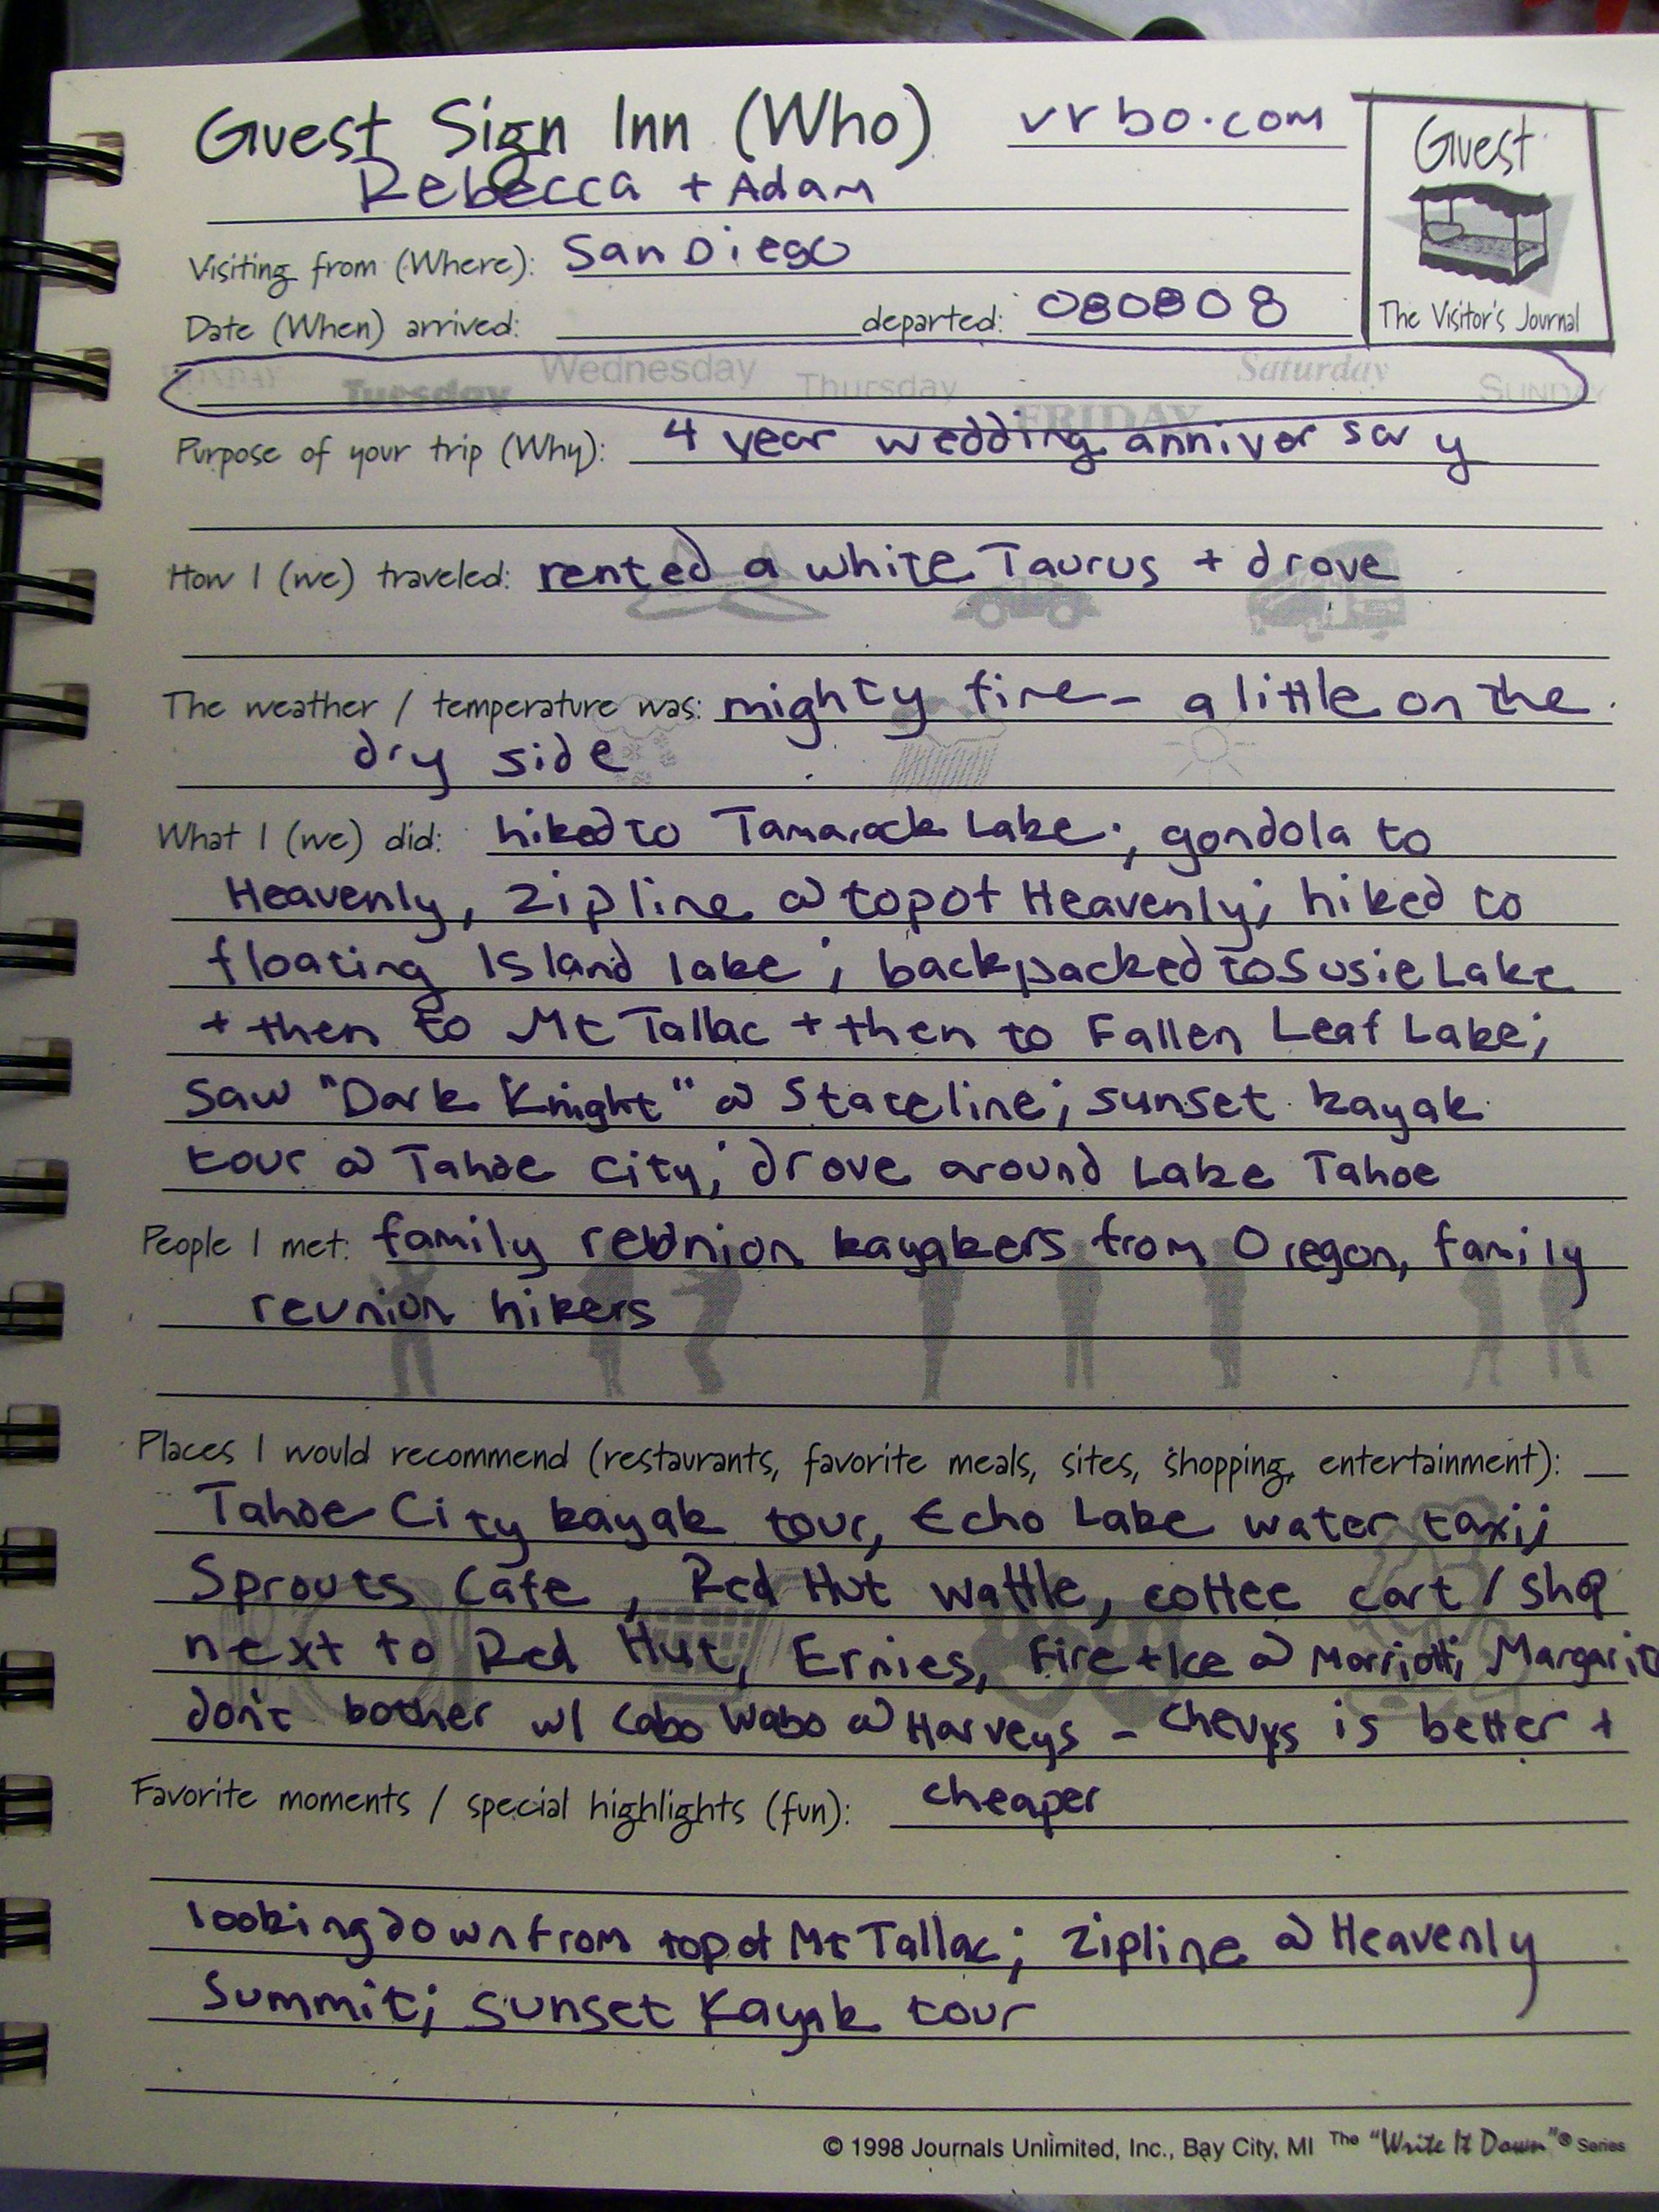 Guest Sign Inn (Who) vrbo.com
Guest
The Visitor's Journal
Rebecca + Adam
Visiting from (Where): San Diego
Date (When) arrived: departed: 080808
MONDAY Tuesday Wednesday Thursday FRIDAY Saturday SUNDAY
Purpose of your trip (Why): 4 year wedding anniversary
How I (we) traveled: rented a white Taurus + drove
The weather / temperature was: mighty fine - a little on the
dry side
What I (we) did: hiked to Tamarack Lake; gondola to
Heavenly, zipline @ top of Heavenly; hiked to
floating Island lake; backpacked to Susie Lake
+ then to Mt Tallac + then to Fallen Leaf Lake;
saw "Dark Knight" @ Stateline; sunset kayak
tour @ Tahoe City; drove around Lake Tahoe
People I met: family reunion kayakers from Oregon, family
reunion hikers
Places I would recommend (restaurants, favorite meals, sites, shopping, entertainment):
Tahoe City kayak tour, Echo Lake water taxi;
Sprouts Cafe, Red Hut Waffle, coffee cart / shop
next to Red Hut, Ernies, Fire + Ice @ Marriott;
don't bother w/ Cabo Wabo @ Harveys - Chevys is better +
Favorite moments / special highlights (fun): cheaper
looking down from top of Mt Tallac; zipline @ Heavenly
Summit; sunset Kayak tour
© 1998 Journals Unlimited, Inc., Bay City, MI The "Write It Down"® Series